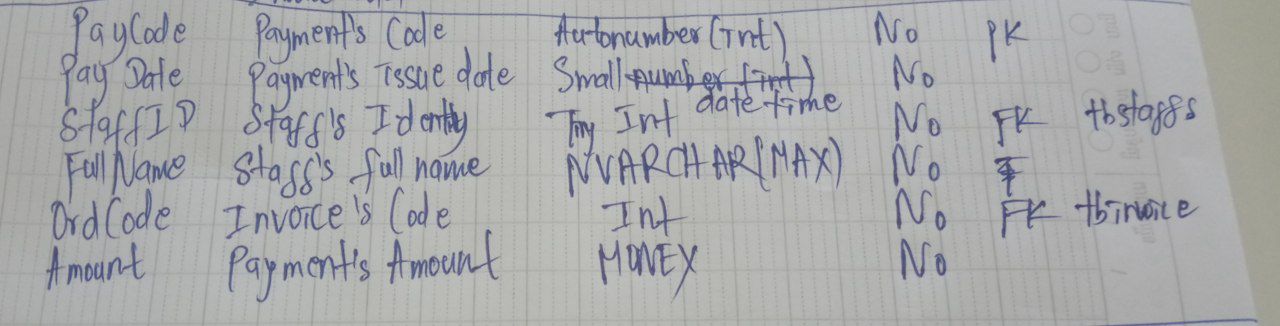 PayCode Payment's Code Autonumber (Int) No PK
Pay Date Payment's Issue date Small number (int) date time No
StaffID Staff's Identity Tiny Int No FK tbstaffs
FullName Staff's full name NVARCHAR(MAX) No
OrdCode Invoice's Code Int No FK tbinvoice
Amount Payment's Amount MONEY No